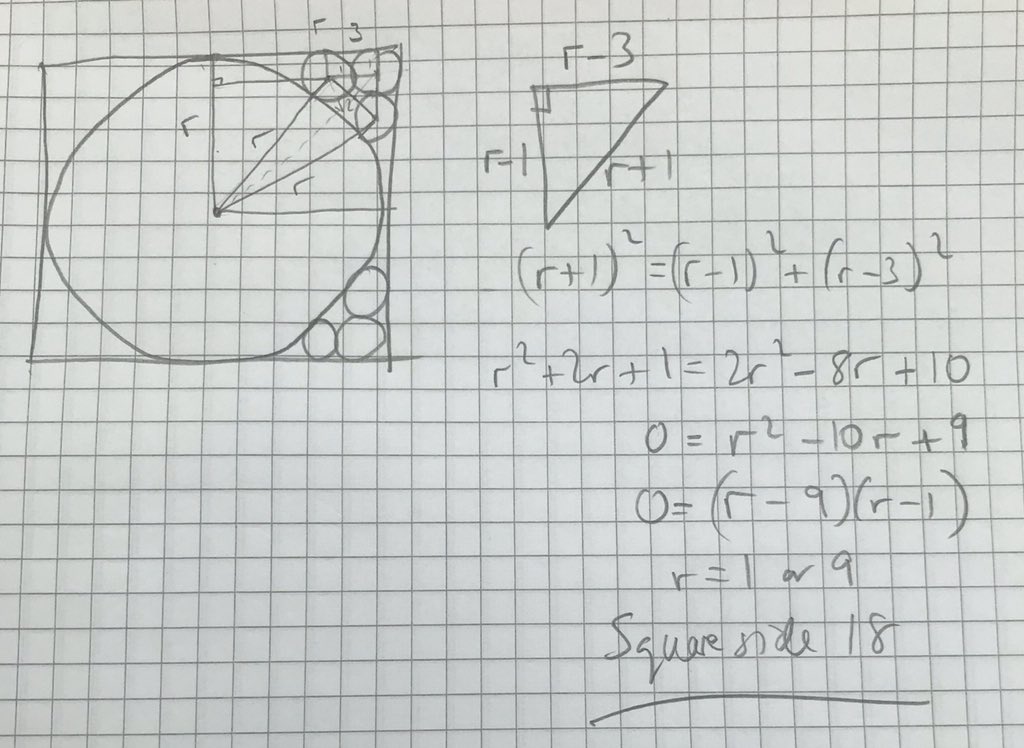 r 3
r
r
r
√2
r-3
r-1
r+1
(r+1)² = (r-1)² + (r-3)²
r² + 2r + 1 = 2r² - 8r + 10
0 = r² - 10r + 9
0 = (r - 9)(r - 1)
r = 1 or 9
Square side 18